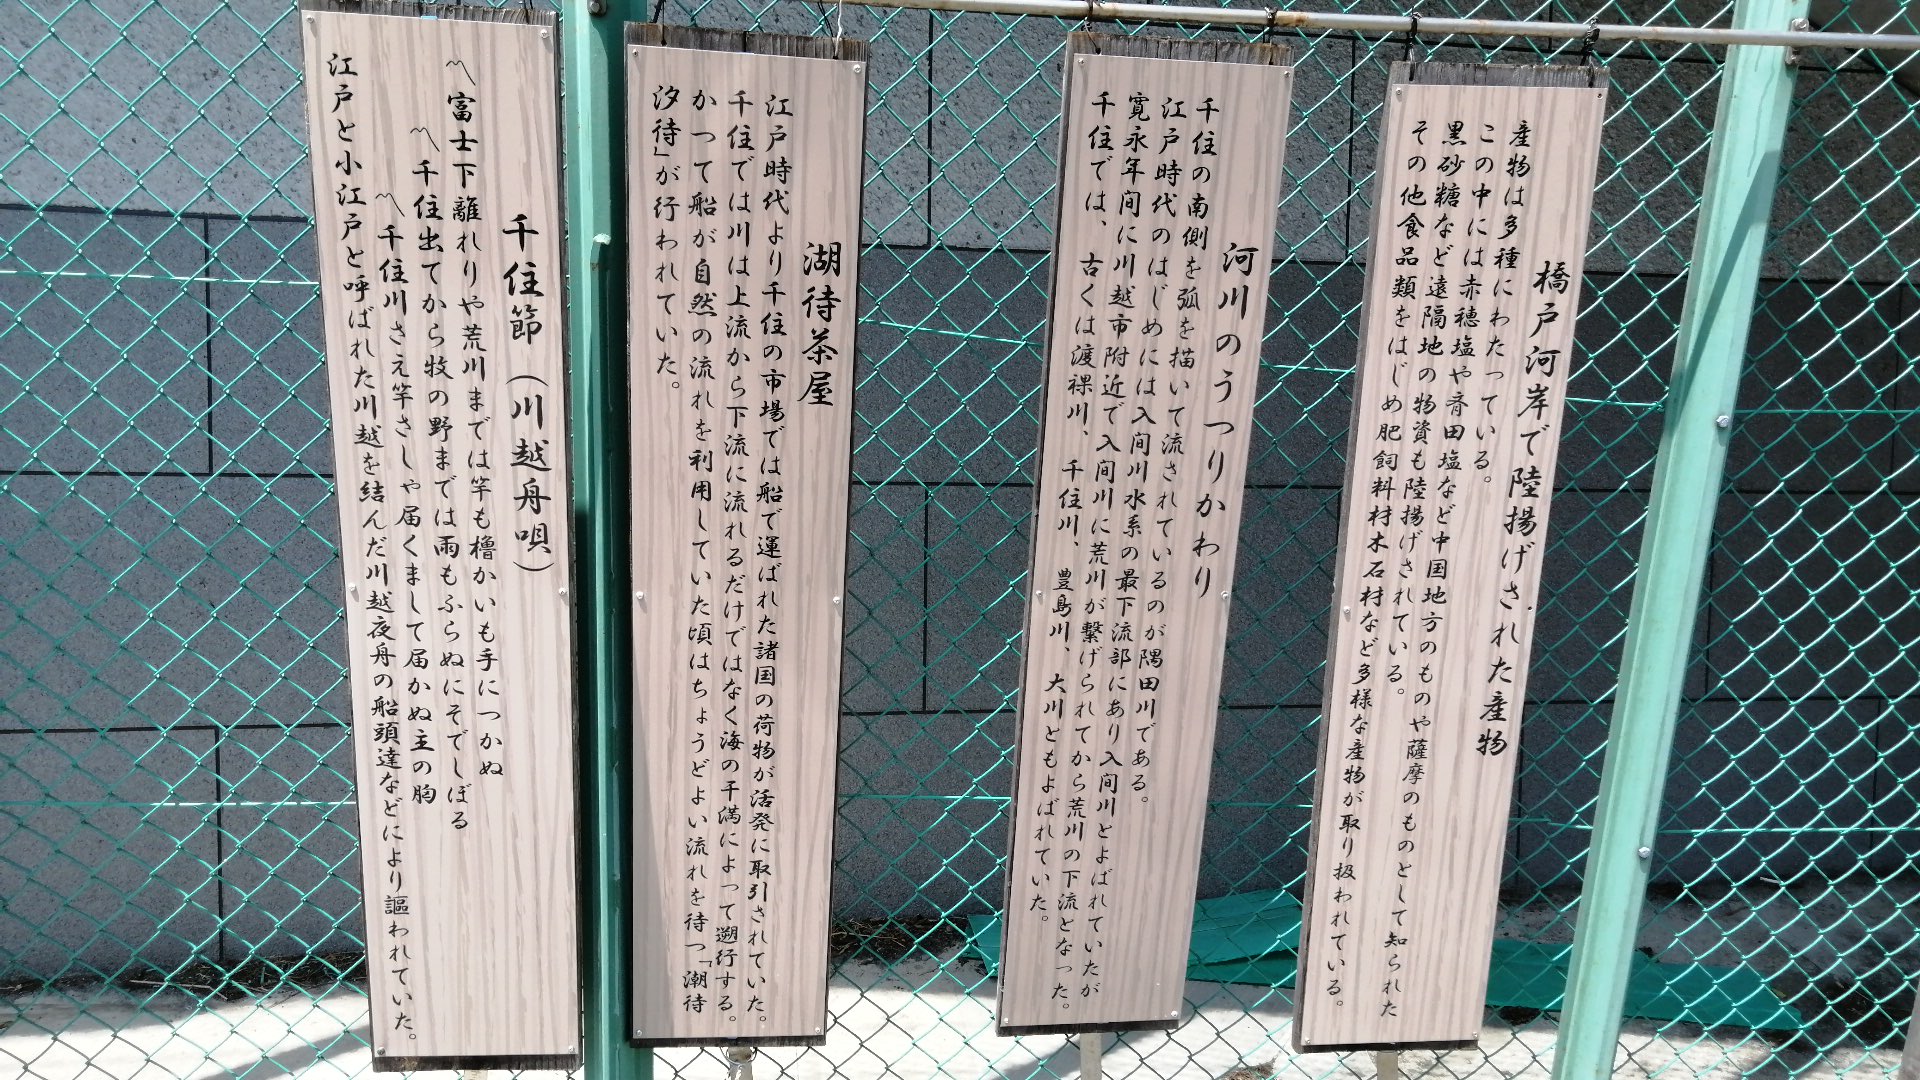 橋戸河岸で陸揚げされた産物
産物は多種にわたっている。
この中には赤穂塩や斉田塩など中国地方のものや薩摩のものとして知られた
黒砂糖など遠隔地の物資も陸揚げされている。
その他食品類をはじめ肥飼料材木石材など多様な産物が取り扱われている。
河川のうつりかわり
千住の南側を弧を描いて流されているのが隅田川である。
江戸時代のはじめには入間川水系の最下流部にあり入間川とよばれていたが
寛永年間に川越市附近で入間川に荒川が繋げられてから荒川の下流となった。
千住では、古くは渡裸川、千住川、豊島川、大川ともよばれていた。
湖待茶屋
江戸時代より千住の市場では船で運ばれた諸国の荷物が活発に取引されていた。
千住では川は上流から下流に流れるだけではなく海の干満によって遡行する。
かつて船が自然の流れを利用していた頃はちょうどよい流れを待つ「潮待
汐待」が行われていた。
千住節(川越舟唄)
〽富士下離れりや荒川までは竿も櫓かいも手につかぬ
〽千住出てから牧の野までは雨もふらぬにそでしぼる
〽千住川さえ竿さしゃ届くまして届かぬ主の胸
江戸と小江戸と呼ばれた川越を結んだ川越夜舟の船頭達などにより謳われていた。